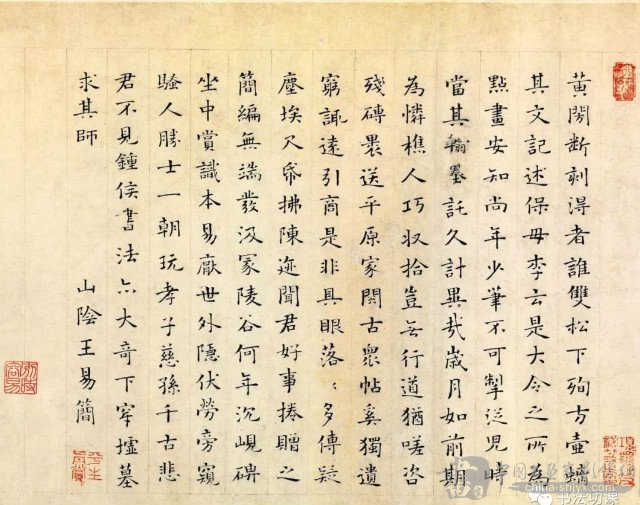 黃閍断刻得者誰雙松下殉方壷螭
其文記述保母李云是大令之所為
點畫安知尚年少筆不可掣従児時
當其翰墨託久計異㢤歲月如前期
為憐樵人巧収拾豈无行道猶嗟咨
殘磚裹送平原家閱古衆帖奚獨遺
窮諏逺引商是非具眼落〻多傳疑
塵埃尺帋拂陳迹聞君好事捲贈之
簡編無端發汲冢陵谷何年沉峴碑
坐中賞識本易厭世外隱伏勞旁窺
騷人勝士一朝玩孝子慈孫千古悲
君不見鍾侯書法亦大奇下穿墟墓
求其師
山陰王易簡
书法功课